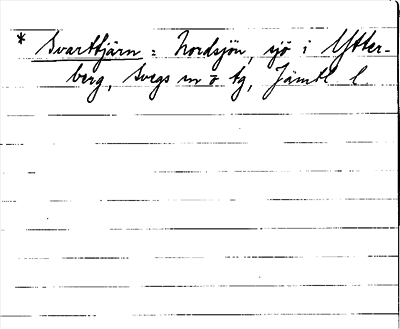 * Svarttjärn = Nordsjön, sjö i Ytter-
berg, Svegs sn o tg, Jämtl l